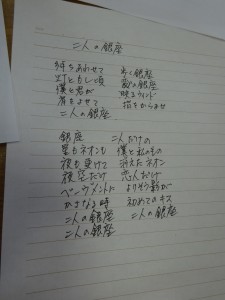 二人の銀座
待ちあわせて 歩く銀座
灯ともし頃 恋の銀座
僕と君が 映るウィンド
肩をよせて 指をからませ
二人の銀座
銀座 二人だけの
星もネオンも 僕と私のもの
夜も更けて 消えたネオン
夜空だけ 恋人だけ
ペーヴメントに よりそう影が
かさなる時 初めてのキス
二人の銀座 二人の銀座
二人の銀座